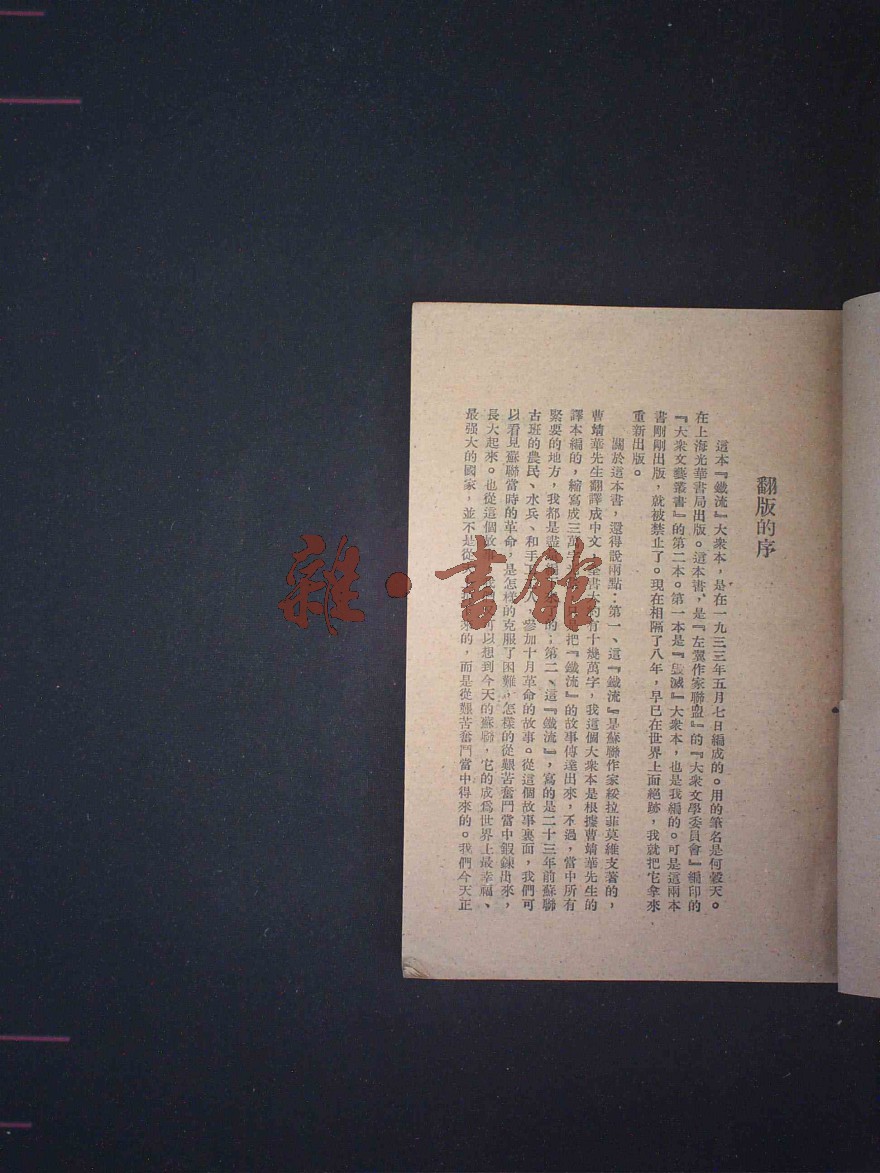 翻版的序
這本『鐵流』大衆本，是在一九三三年五月七日編成的。用的筆名是何穀天。
在上海光華書局出版。這本書，是『左翼作家聯盟』的『大衆文學委員會』編印的
『大衆文藝叢書』的第二本。第一本是『毀滅』大衆本，也是我編的。可是這兩本
書剛剛出版，就被禁止了。現在相隔了八年，早已在世界上面絕跡，我就把它拿來
重新出版。
關於這本書，還得說兩點：第一、這『鐵流』是蘇聯作家綏拉菲莫維支著的，
曹靖華先生翻譯成中文，全書大約有十幾萬字，我這個大衆本是根據曹靖華先生的
譯本編的，縮寫成三萬字 把『鐵流』的故事傳達出來，不過，當中所有
緊要的地方，我都是盡 的；第二、這『鐵流』，寫的是二十三年前蘇聯
古班的農民、水兵、和手工 參加十月革命的故事。從這個故事裏面，我們可
以看見蘇聯當時的革命，是怎樣的克服了困難，怎樣的從艱苦奮鬥當中鍛鍊出來，
長大起來。也從這個故 可以想到今天的蘇聯，它的成爲世界上最幸福、
最强大的國家，並不是從 來的，而是從艱苦奮鬥當中得來的。我們今天正
雜·書館